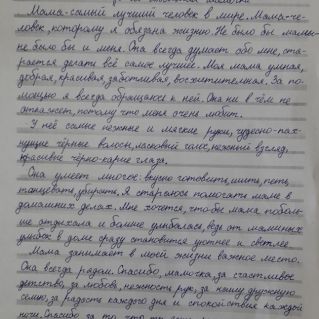 Мама-самый лучший человек в мире. Мама-че-
ловек, которому я обязана жизнью. Не было бы мамы-
не было бы и меня. Она всегда думает обо мне, ста-
рается делать всё самое лучшее. Моя мама умная,
добрая, красивая, заботливая, восхитительная. За по-
мощью я всегда обращаюсь к ней. Она ни в чём не
откажет, потому что меня очень любит.
У неё самые нежные и мягкие руки, чудесно-пах-
нущие чёрные волосы, ласковый голос, нежный взгляд,
красивые чёрно-карие глаза.
Она умеет многое: вкусно готовить, шить, петь,
танцевать, убирать. Я стараюсь помогать маме в
домашних делах. Мне хочется, чтобы мама поболь-
ше отдыхала и больше улыбалась, ведь от маминых
улыбок в доме сразу становится уютнее и светлее.
Мама занимает в моей жизни важное место.
Она всегда рядом. Спасибо, мамочка, за счастливое
детство, за любовь, нежность рук, за нашу дружную
семью, за радость каждого дня и спокойствие каждой
ночи. Спасибо за то, что ты